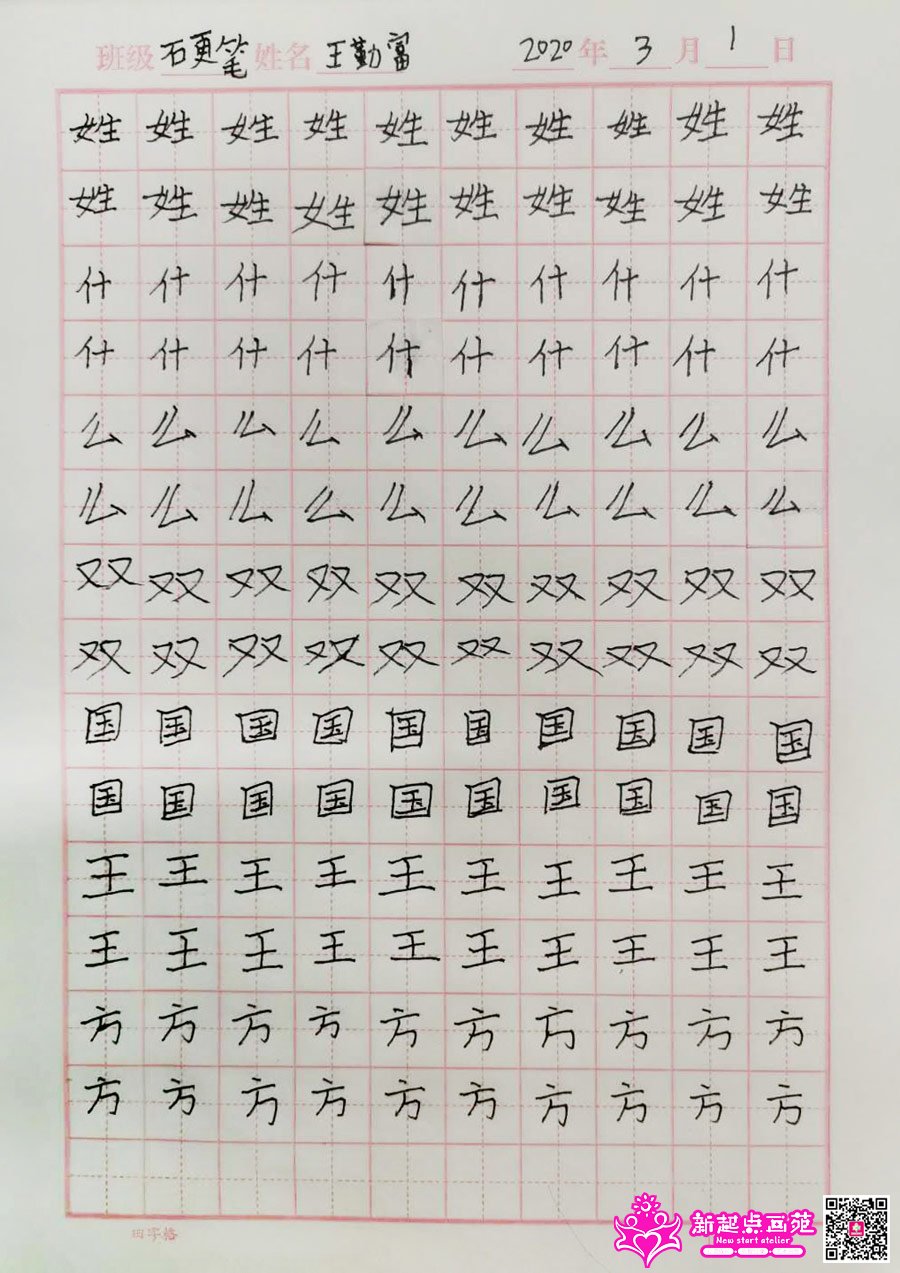 班级 石更笔 姓名 王勤富 2020 年 3 月 1 日
姓 姓 姓 姓 姓 姓 姓 姓 姓 姓
姓 姓 姓 姓 姓 姓 姓 姓 姓 姓
什 什 什 什 什 什 什 什 什 什
什 什 什 什 什 什 什 什 什 什
么 么 么 么 么 么 么 么 么 么
么 么 么 么 么 么 么 么 么 么
双 双 双 双 双 双 双 双 双 双
双 双 双 双 双 双 双 双 双 双
国 国 国 国 国 国 国 国 国 国
国 国 国 国 国 国 国 国 国 国
王 王 王 王 王 王 王 王 王 王
王 王 王 王 王 王 王 王 王 王
方 方 方 方 方 方 方 方 方 方
方 方 方 方 方 方 方 方 方 方
田字格
新起点画苑
New start atelier